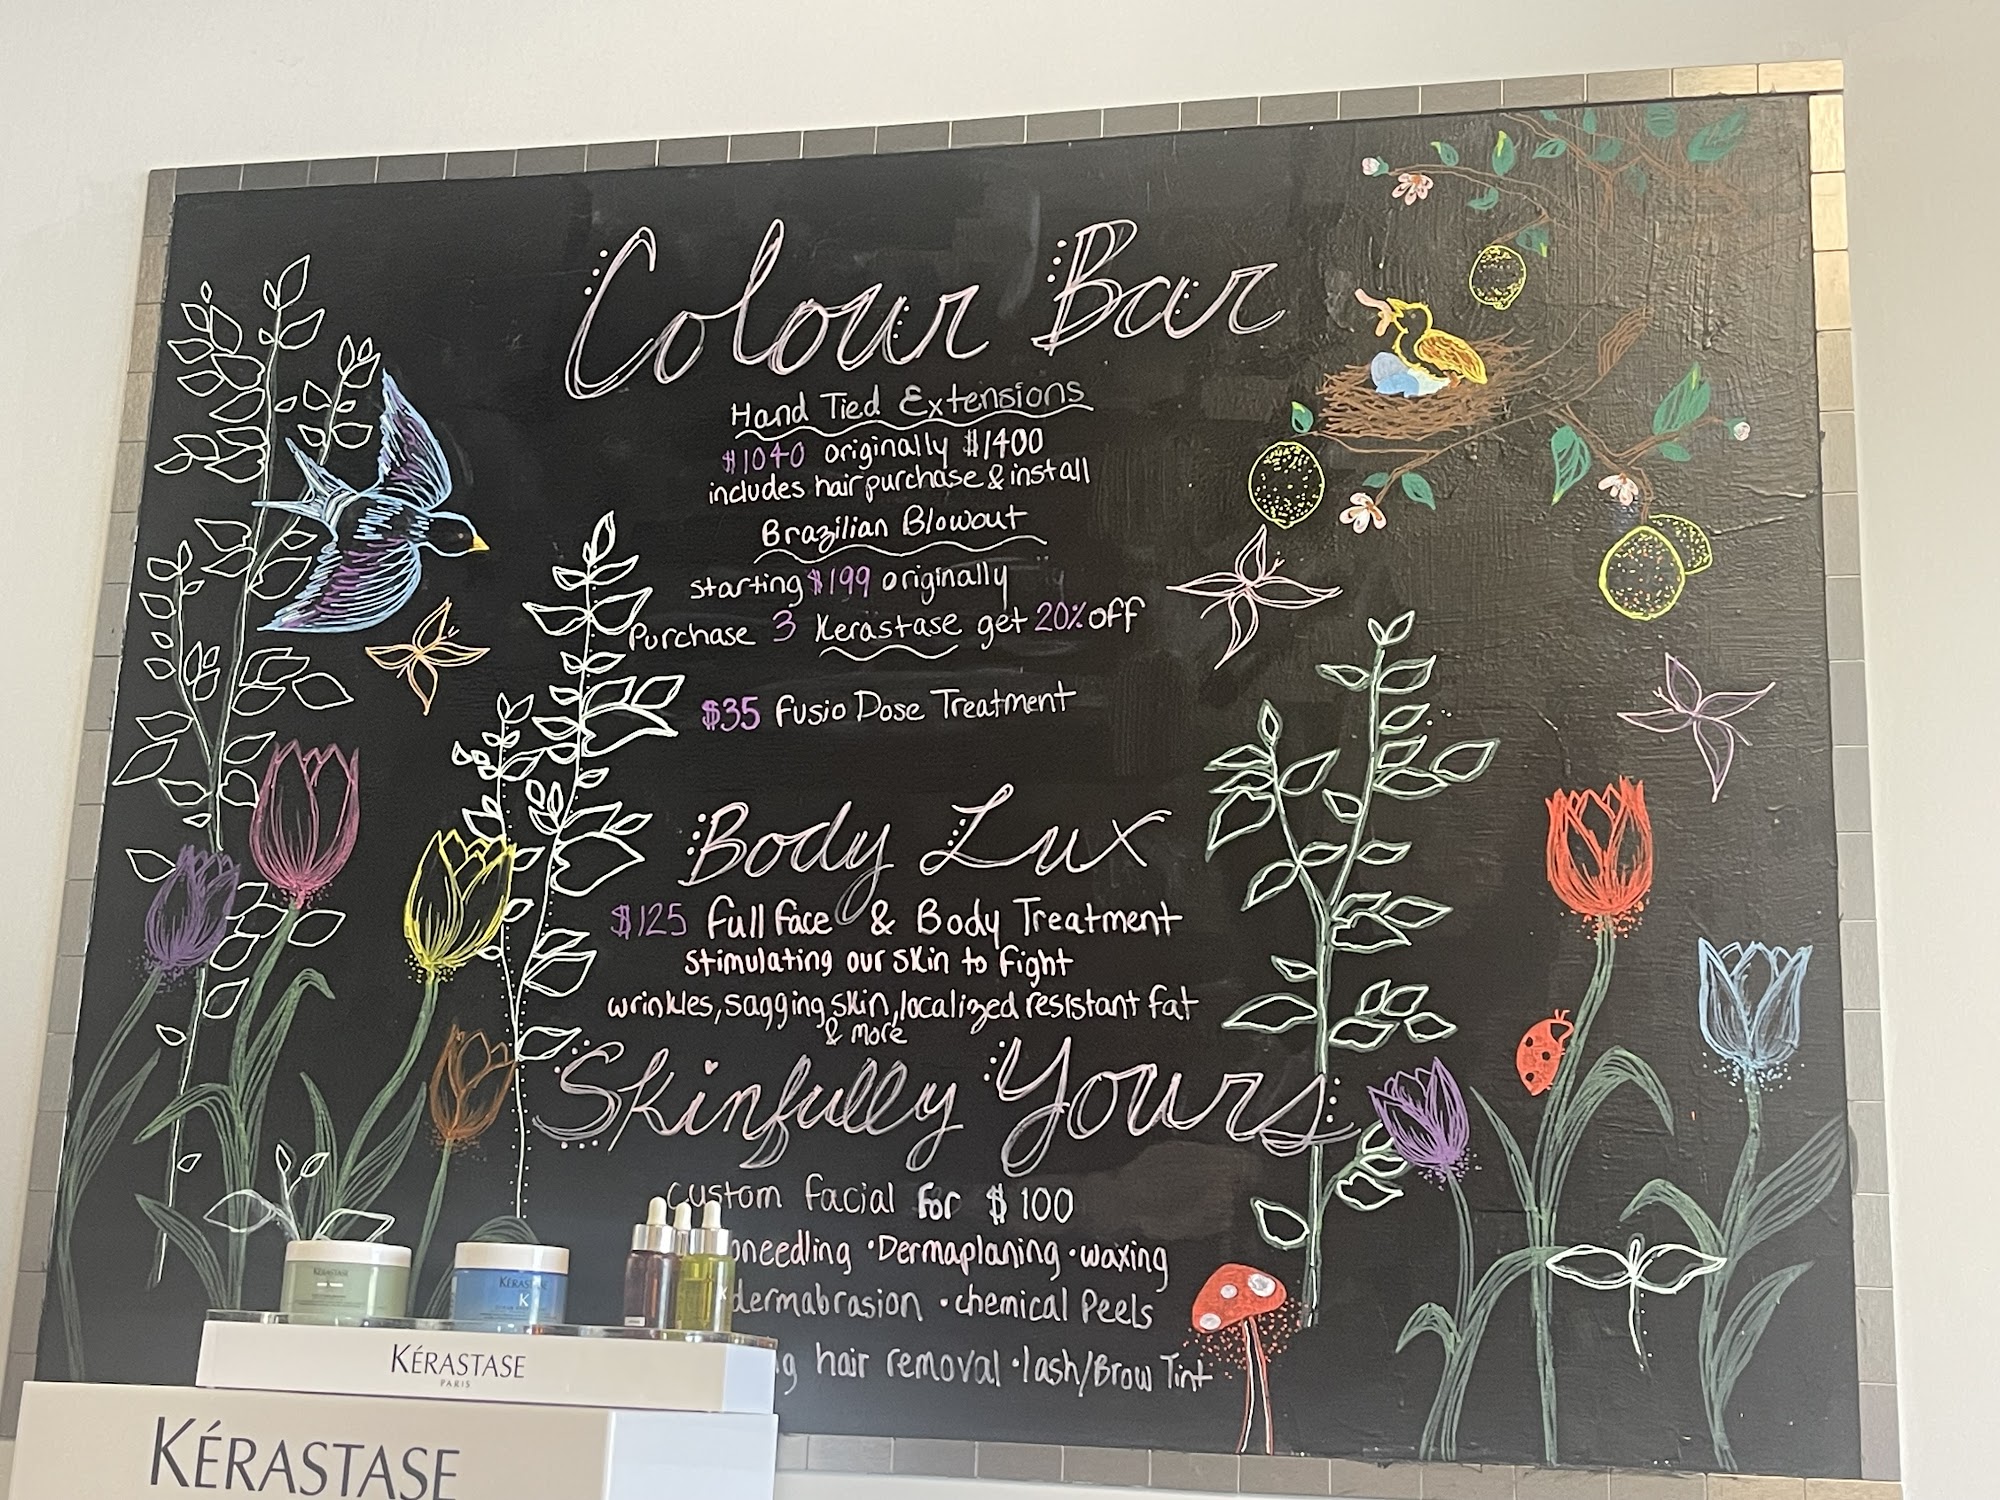 Colour Bar
Hand Tied Extensions
$1040 originally $1400
includes hair purchase & install
Brazilian Blowout
starting $199 originally
Purchase 3 Kerastase get 20% off
$35 Fusio Dose Treatment
Body Lux
$125 Full Face & Body Treatment
stimulating our skin to fight
wrinkles, sagging skin, localized resistant fat
& more
Skinfully Yours
Custom facial for $100
oneedling • Dermaplaning • waxing
dermabrasion • chemical Peels
g hair removal • lash/Brow Tint
KÉRASTASE
KÉRASTASE
K
KÉRASTASE
PARIS
KÉRASTASE